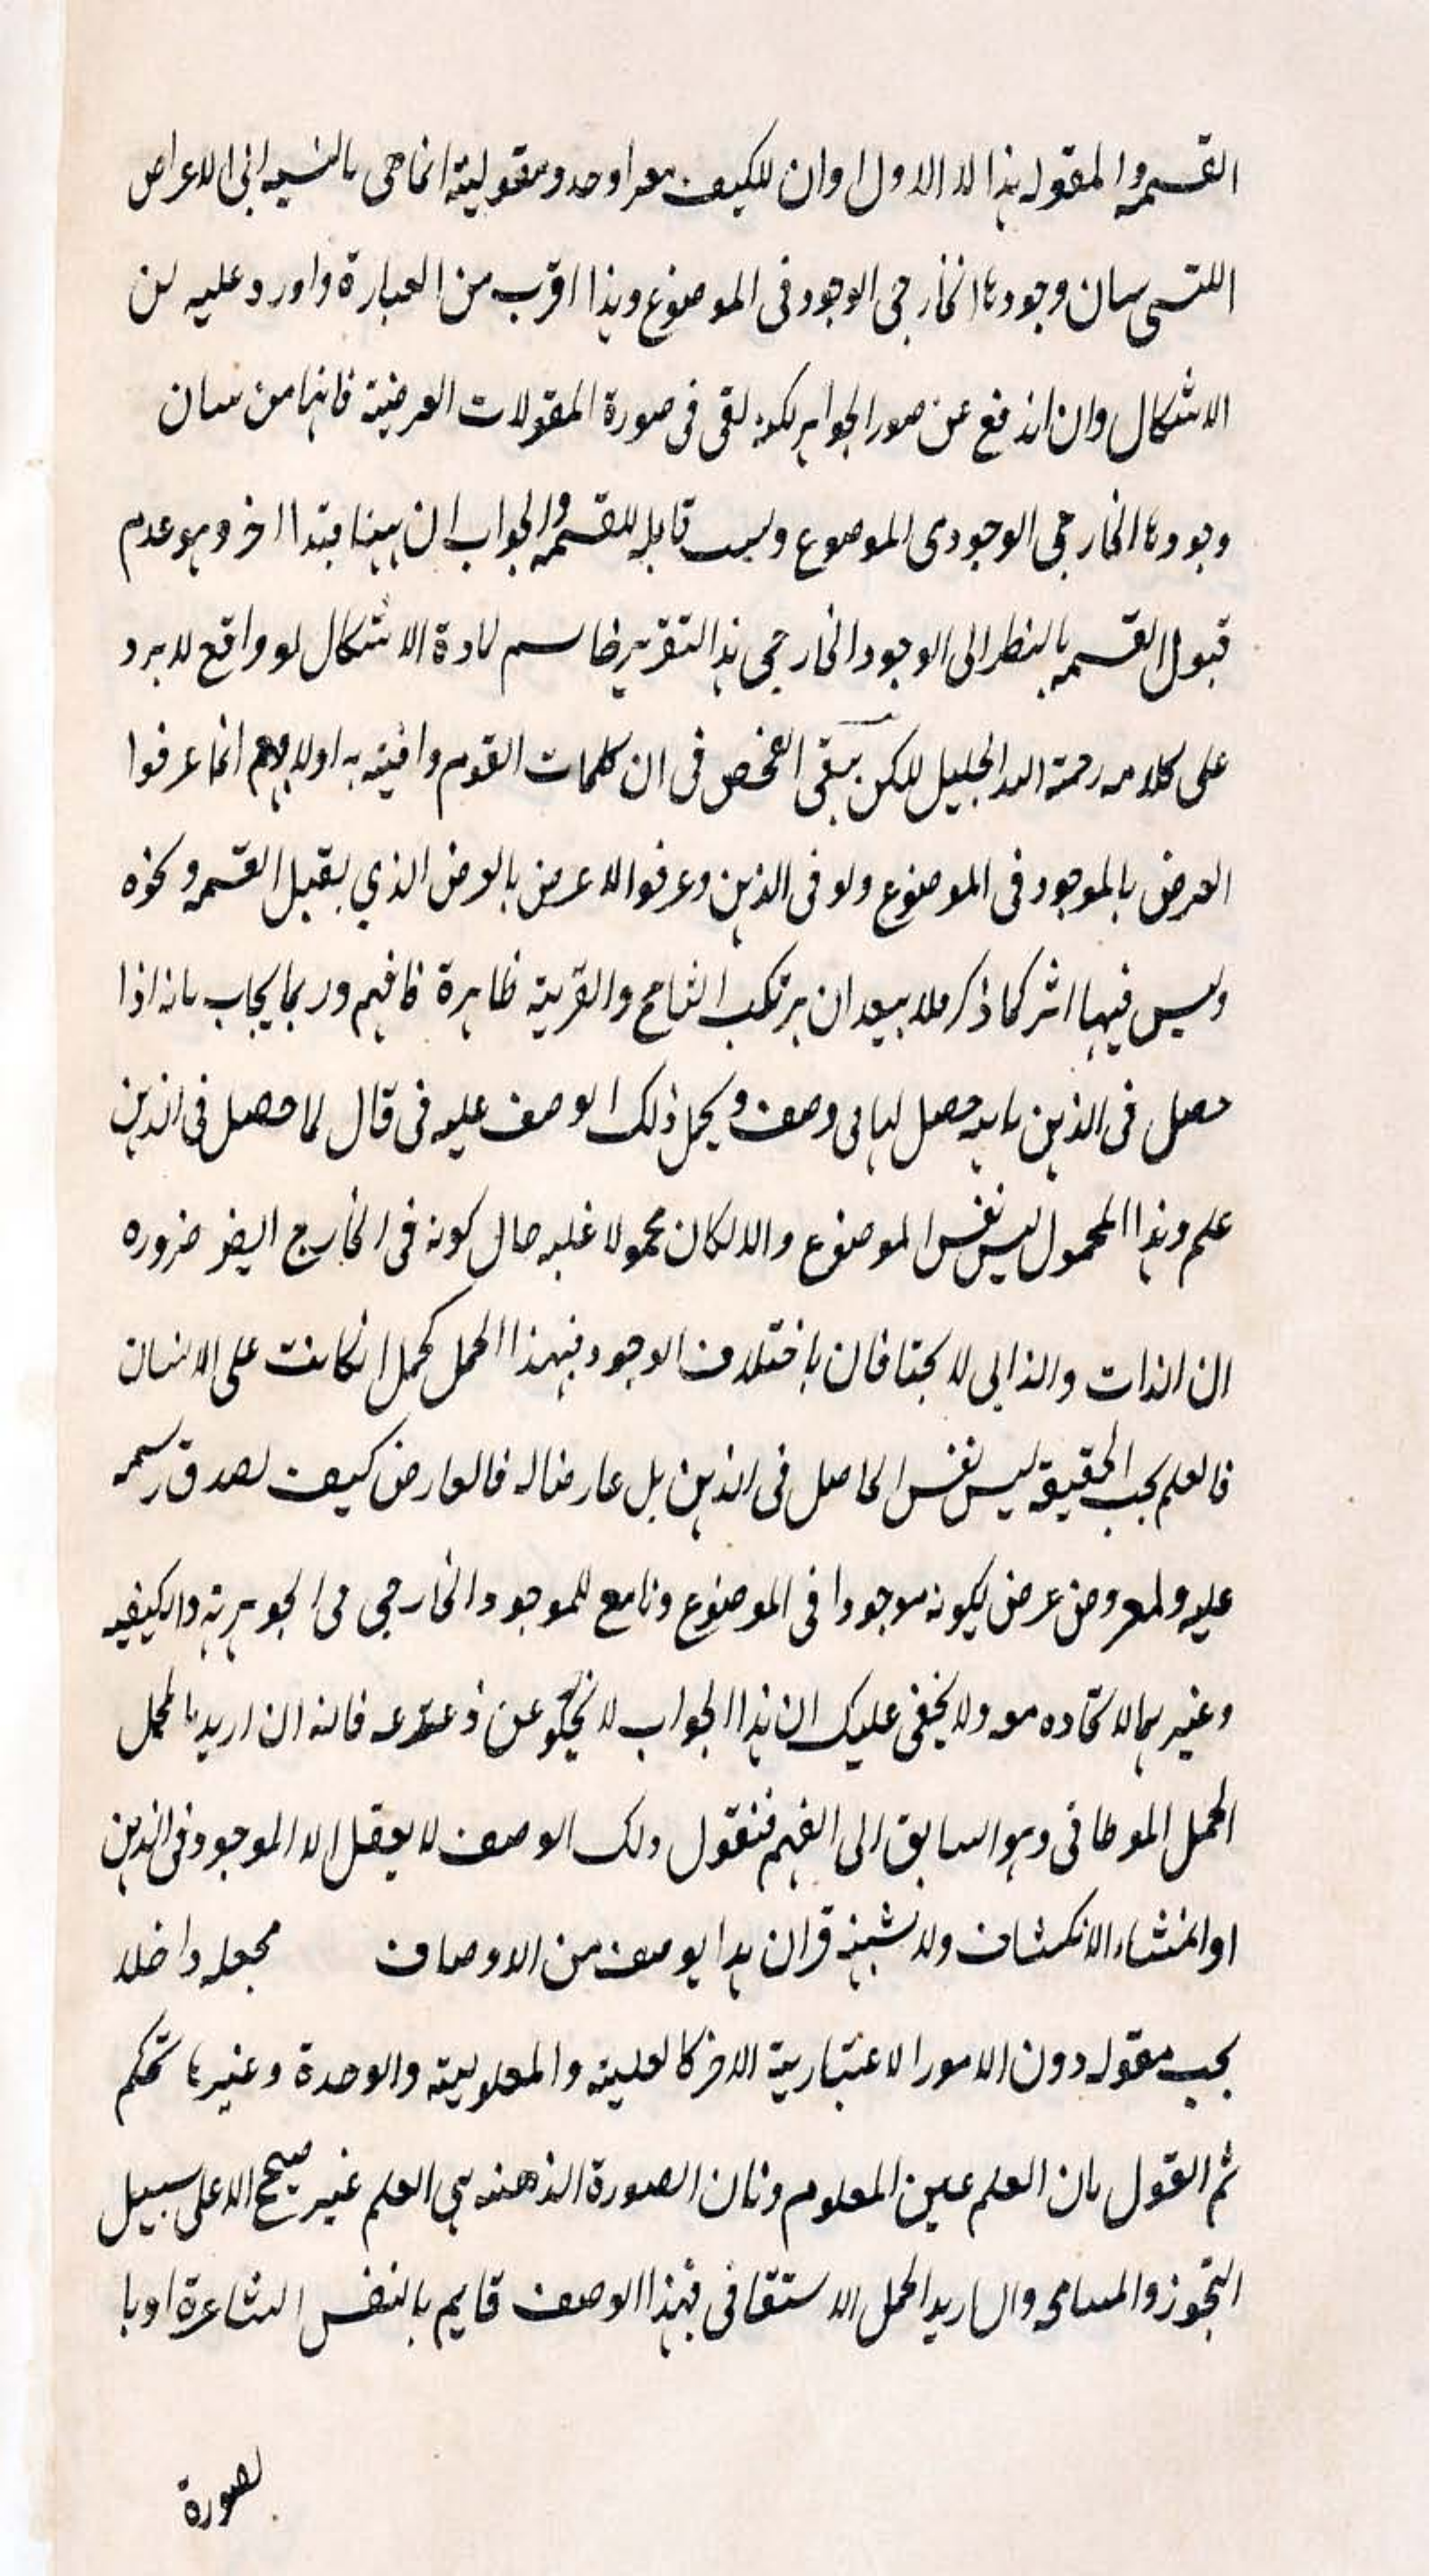 القسمه والمقوله هذا لا الاول او ان للكيف معرا وحد ومقوليته انما هى بالنسبه الى الاعراض
اللتى سان وجودها الخارجى الوجود فى الموضوع وهذا اقرب من العبارة واورد عليه لان
الاشكال وان اندفع عن صور الجواهر لكنه لقى فى صورة المقولات العرضية فانها من سان
وجودها الخارجى الوجود فى الموضوع وليست قابله للقسمه والجواب ان ههنا قيدا اخر وهو عدم
قبول القسمه بالنظر الى الوجود الخارجى هذا التقرير حاسم لمادة الاشكال لو واقع لا يرد
على كلامه رحمة الله الجليل للكن يبقى الفحص فى ان كلمات القوم وافية به اولا فهم انما عرفوا
العرض بالموجود فى الموضوع ولو فى الذهن وعرفوا الاعرض بالعرض الذي يقبل القسمه ونحوه
وليس فيها اثر كما ذكر فلا يبعد ان يرتكب التسامح والقرينة ظاهرة فافهم وربما يجاب بانه اذا
حصل فى الذهن ماهيه حصل لها فى وصف ويحمل ذلك الوصف عليه فى قال لما حصل فى الذهن
علم وهذا المحمول ليس نفس الموضوع والا لكان محمولا عليه حال كونه فى الخارج ايضر ضروره
ان الذات والذاتى لا يختلفان باختلاف الوجود فهذا الحمل كحمل الكاتب على الانسان
فالعلم بحسب الحقيقة ليس نفس الحاصل فى الذهن بل عارضا له فالعارض كيف لصدق رسمه
عليه ولمعروض عرض لكونه موجودا فى الموضوع وتابع للموجود الخارجى فى الجوهرية والكيفيه
وغيرهما لاتحاده معه ولا يخفى عليك ان هذا الجواب لا يخلو عن فانه ان اريد بالحمل
الحمل المواطاتى وهو السابق الى الفهم فنقول ذلك الوصف لا يعقل الا الموجود فى الذهن
او المنشاء الانكشاف ولا هذا يوصف من الاوصاف مجعله داخلا
بحسب مقوله دون الامور الاعتبارية الاخر كالعلية والمعلولية والوحدة وغيرها تحكم
ثم القول بان العلم عين المعلوم وبان الصورة الذهنيه هي العلم غير صحيح الا على سبيل
التجوز والمسامحه وان اريد الحمل الاشتقاقى فهذا الوصف قايم بالنفس الشاعرة او با
لصورة